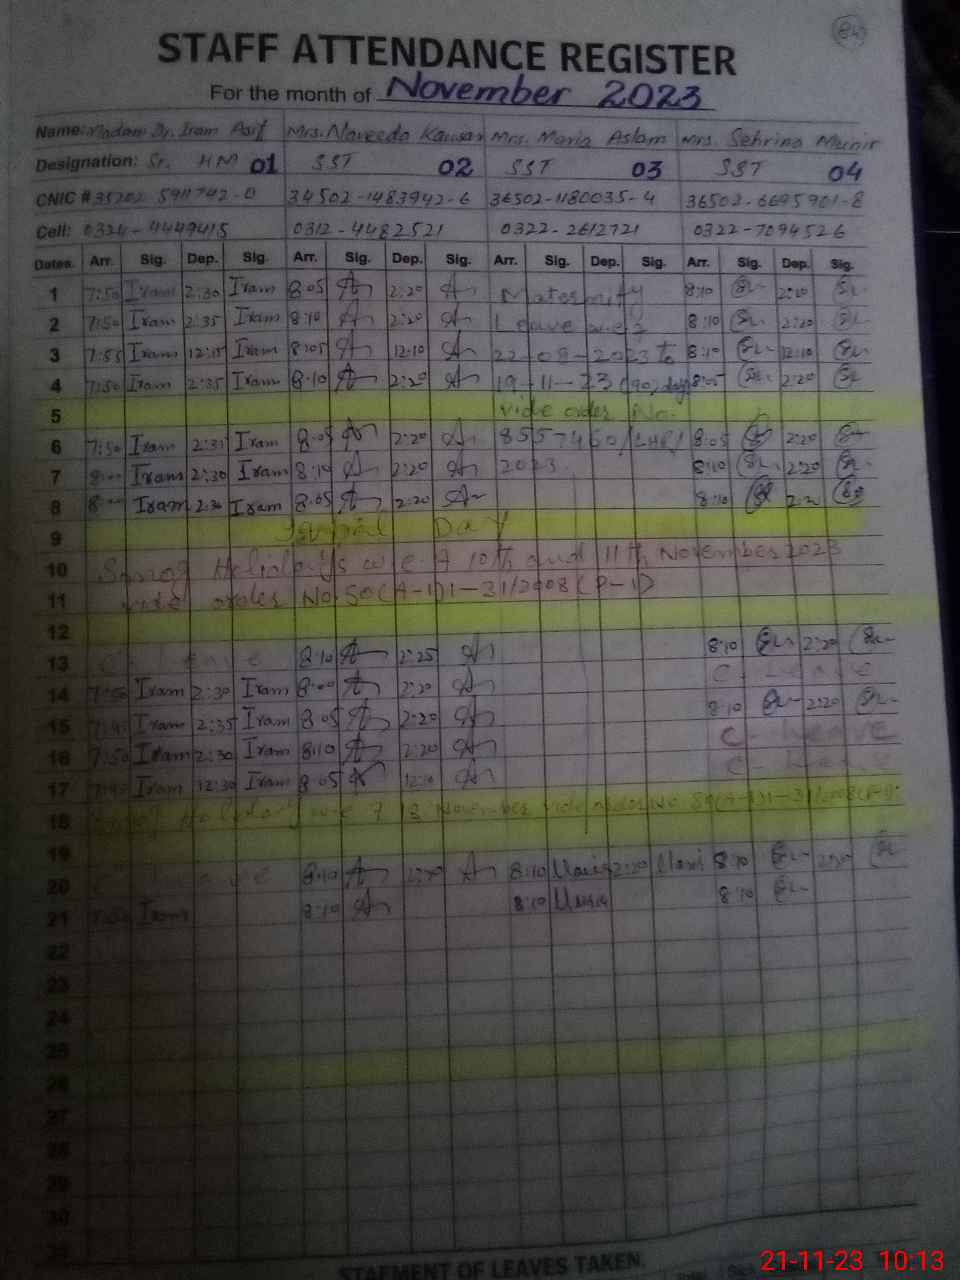 84
STAFF ATTENDANCE REGISTER
For the month of November 2023
Name: Madam Dr. Iram Asif Mrs. Naveeda Kausar Mrs. Maria Aslam Mrs. Sehrina Munir
Designation: Sr. HM 01 SST 02 SST 03 SST 04
CNIC # 35202 5911742-0 34502-1483942-6 36502-1180035-4 36502-6695901-8
Cell: 0324-4449415 0312-4482521 0322-2612721 0322-7094526
Dates. Arr. Sig. Dep. Sig. Arr. Sig. Dep. Sig. Arr. Sig. Dep. Sig. Arr. Sig. Dep. Sig.
1 7:50 Iram 2:30 Iram 8:05 2:20 Maternity 8:10 2:20
2 7:50 Iram 2:35 Iram 8:10 2:20 Leave w.e.f 8:10 2:20
3 7:55 Iram 12:15 Iram 8:05 12:10 22-08-2023 to 8:10 12:10
4 7:50 Iram 2:35 Iram 8:10 2:20 19-11-23 (90) days 8:05 2:20
5 vide order No.
6 7:50 Iram 2:35 Iram 8:05 2:20 8557460/LHR/ 8:05 2:20
7 8:00 Iram 2:30 Iram 8:10 2:20 2023 8:10 2:20
8 8:00 Iram 2:30 Iram 8:05 2:20 8:10 2:20
9 Day
10 Smog Holidays w.e.f 10th and 11th November 2023
11 vide order No SO(A-1)1-31/2008(P-1)
12
13 C-Leave 8:10 2:25 8:10 2:20
14 7:50 Iram 2:30 Iram 8:00 2:20 C-Leave
15 7:45 Iram 2:35 Iram 8:05 2:20 8:10 2:20
16 7:50 Iram 2:30 Iram 8:10 2:20 C-Leave
17 7:45 Iram 12:30 Iram 8:05 12:10 C-Leave
18 Smog Holiday w.e.f 18 November vide order No SO(A-1)1-31/2008(P-1)
19
20 C-Leave 8:10 2:20 8:10 Maria 2:20 Maria 8:10 2:20
21 Iram 8:10 8:10 Maria 8:10
22
23
24
25
26
27
28
29
30
31
STAEMENT OF LEAVES TAKEN.
21-11-23 10:13